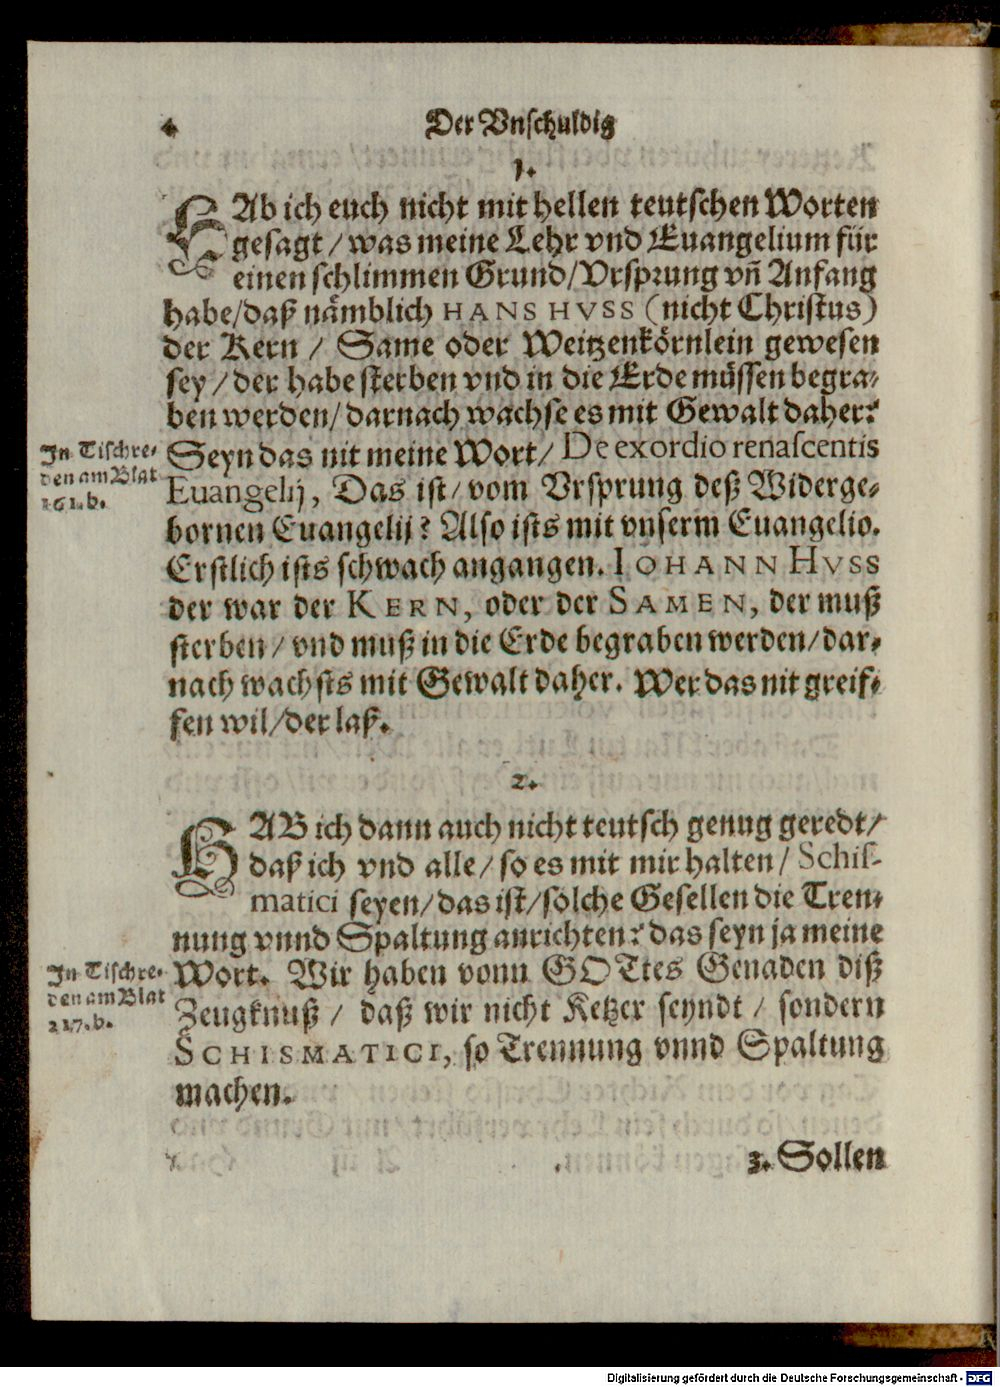 4 Der Vnschuldig
1.
HAb ich euch nicht mit hellen teutschen Worten
gesagt / was meine Lehr vnd Euangelium für
einen schlimmen Grund/Vrsprung vñ Anfang
habe/daß nämblich HANS HVSS (nicht Christus)
der Kern / Same oder Weitzenkörnlein gewesen
sey / der habe sterben vnd in die Erde müssen begra-
ben werden/ darnach wachse es mit Gewalt daher?
In Tischre-
den am Blat
161.b.
Seyn das nit meine Wort/ De exordio renascentis
Euangelij, Das ist/ vom Vrsprung deß Widerge-
bornen Euangelij? Also ists mit vnserm Euangelio.
Erstlich ists schwach angangen. IOHANN HVSS
der war der KERN, oder der SAMEN, der muß
sterben / vnd muß in die Erde begraben werden/dar-
nach wachsts mit Gewalt daher. Wer das nit greif-
fen wil/der laß.
2.
HAB ich dann auch nicht teutsch genug geredt/
daß ich vnd alle / so es mit mir halten / Schis-
matici seyen/das ist/solche Gesellen die Tren-
nung vnnd Spaltung anrichten? das seyn ja meine
In Tischre-
den am Blat
217.b.
Wort. Wir haben vonn GOTtes Genaden diß
Zeugknuß / daß wir nicht Ketzer seyndt / sondern
SCHISMATICI, so Trennung vnnd Spaltung
machen.
3. Sollen
Digitalisierung gefördert durch die Deutsche Forschungsgemeinschaft - DFG